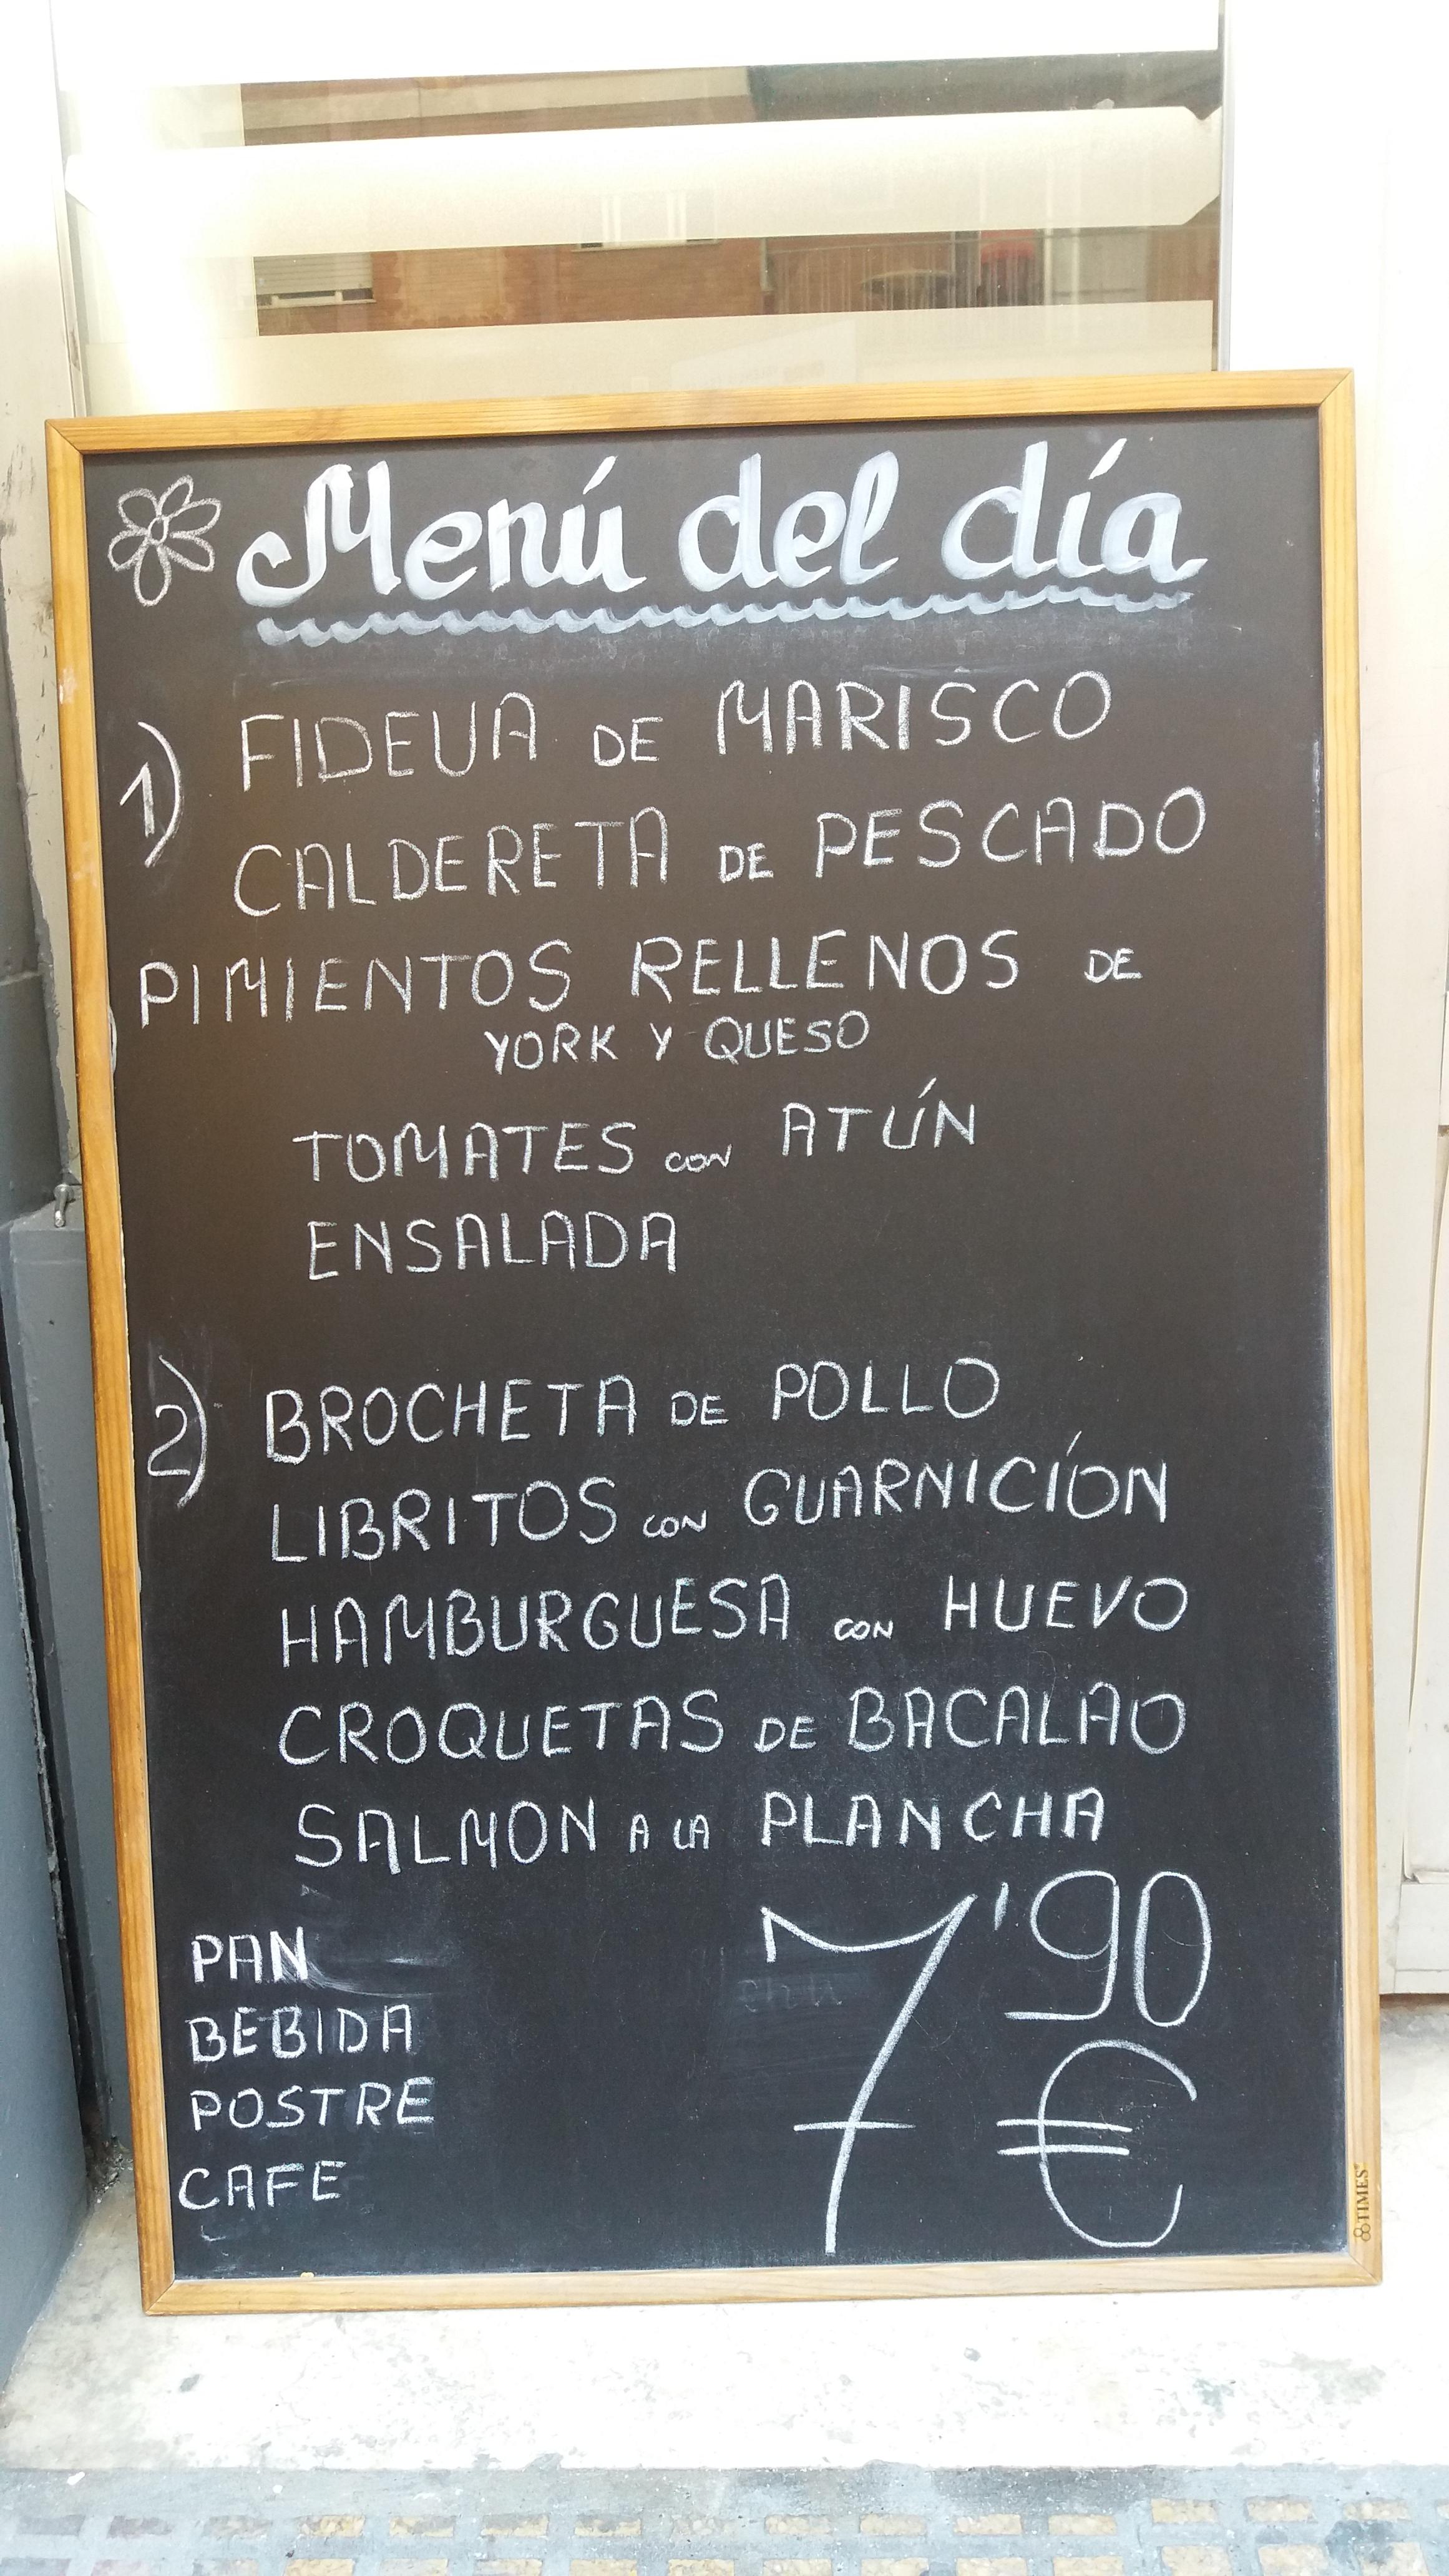 Menú del día
1) FIDEUA DE MARISCO
CALDERETA DE PESCADO
PIMIENTOS RELLENOS DE
YORK Y QUESO
TOMATES CON ATÚN
ENSALADA
2) BROCHETA DE POLLO
LIBRITOS CON GUARNICÍON
HAMBURGUESA CON HUEVO
CROQUETAS DE BACALAO
SALMON A LA PLANCHA
PAN
BEBIDA
POSTRE
CAFE
7'90
€
TIMES